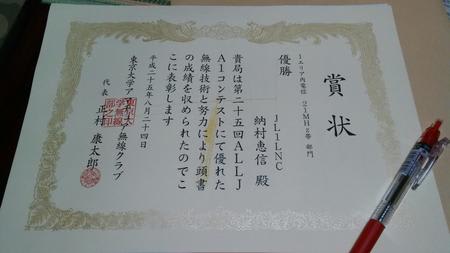 賞状
1エリア内電信 21MHz帯 部門
優勝
JL1LNC
納村恵信 殿
貴局は第二十五回ALLJ
A1コンテストにて優れた
無線技術と努力により頭書
の成績を収められたのでこ
こに表彰します
平成二十五年八月二十四日
東京大学アマチュア無線クラブ
代表 正村 康太郎